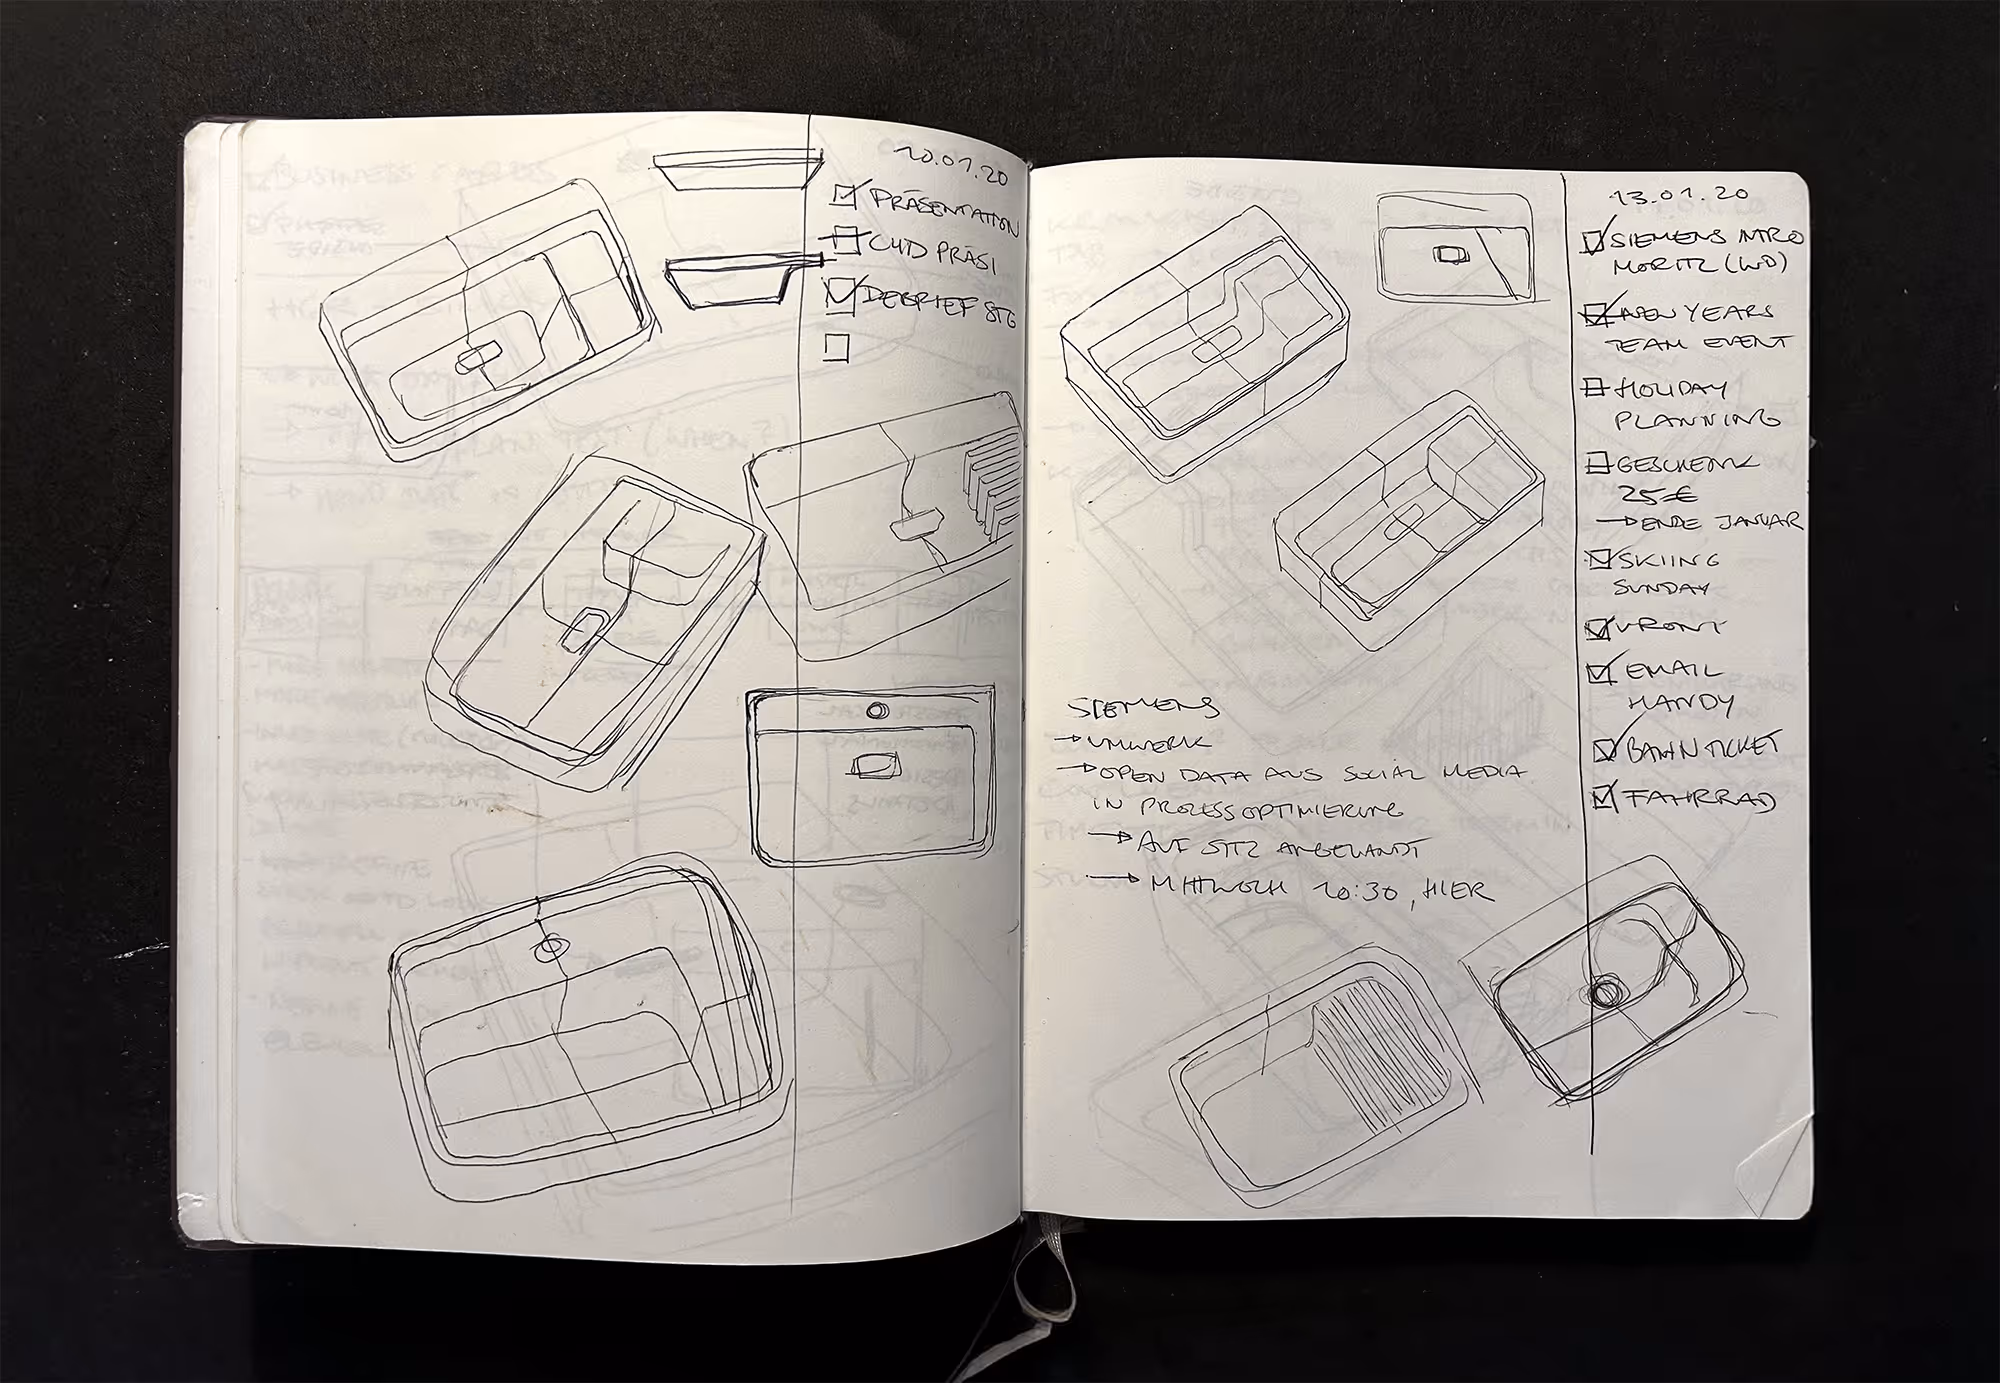 10.01.20
PRÄSENTATION
CWD PRÄSI
DEBRIEF STG
13.01.20
SIEMENS INTRO
MORITZ (WD)
NEW YEARS
TEAM EVENT
HOLIDAY
PLANNING
GESCHENK
25€
→ ENDE JANUAR
SKIING
SUNDAY
FRONT
EMAIL
HANDY
BAHNTICKET
FAHRRAD
SIEMENS
→
→ OPEN DATA AUS SOCIAL MEDIA
IN PROZESSOPTIMIERUNG
→ AUF SITZ ANGEWANDT
→ MITTWOCH 10:30, HIER